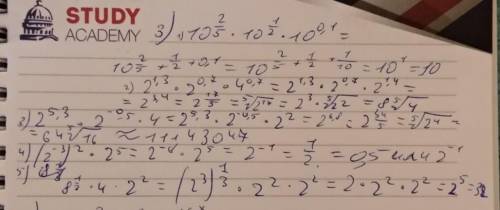 STUDY
ACADEMY
3) 1) 10^(2/5) · 10^(1/2) · 10^(0,1) =
10^(2/5 + 1/2 + 0,1) = 10^(2/5 + 1/2 + 1/10) = 10^1 = 10
2) 2^(1,3) · 2^(0,7) · 4^(0,7) = 2^(1,3) · 2^(0,7) · 2^(1,4) =
= 2^(3,4) = 2^(17/5) = ⁵√(2^17) = 2^3 ⁵√(2^2) = 8 ⁵√4
3) 2^(5,3) · 2^(-0,5) · 4 = 2^(5,3) · 2^(-0,5) · 2^2 = 2^(6,8) = 2^(34/5) = ⁵√(2^34) =
= 64 ⁵√16 ≈ 111,43047
4) (2^(-3))^2 · 2^5 = 2^(-6) · 2^5 = 2^(-1) = 1/2 = 0,5 или 2^(-1)
5) 8^(1/3) · 4 · 2^2 = (2^3)^(1/3) · 2^2 · 2^2 = 2 · 2^2 · 2^2 = 2^5 = 32